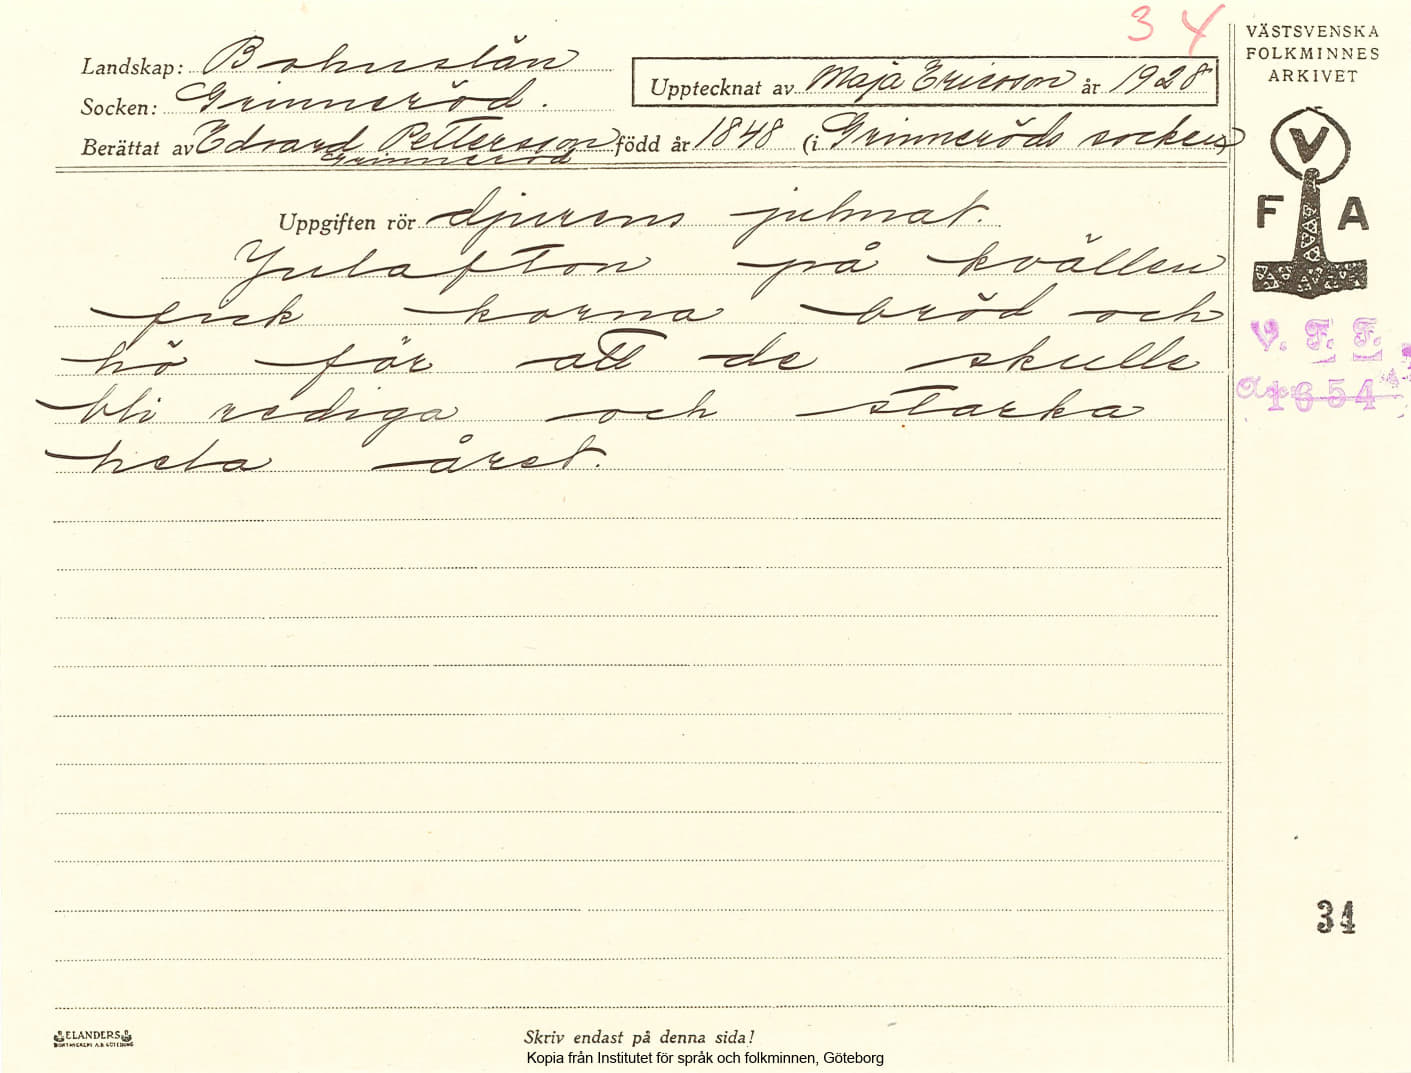 34
Landskap: Bohuslän
Socken: Grinneröd.
Upptecknat av Maja Ericsson år 1928
Berättat av Edvard Pettersson född år 1848 (i Grinneröds socken)
Grinneröd
Uppgiften rör djurens julmat.
Julafton på kvällen
fick korna bröd och
hö för att de skulle
bli rediga och starka
hela året.
VÄSTSVENSKA
FOLKMINNES
ARKIVET
V
F A
V. F. F.
1654
34
ELANDERS
Skriv endast på denna sida!
Kopia från Institutet för språk och folkminnen, Göteborg